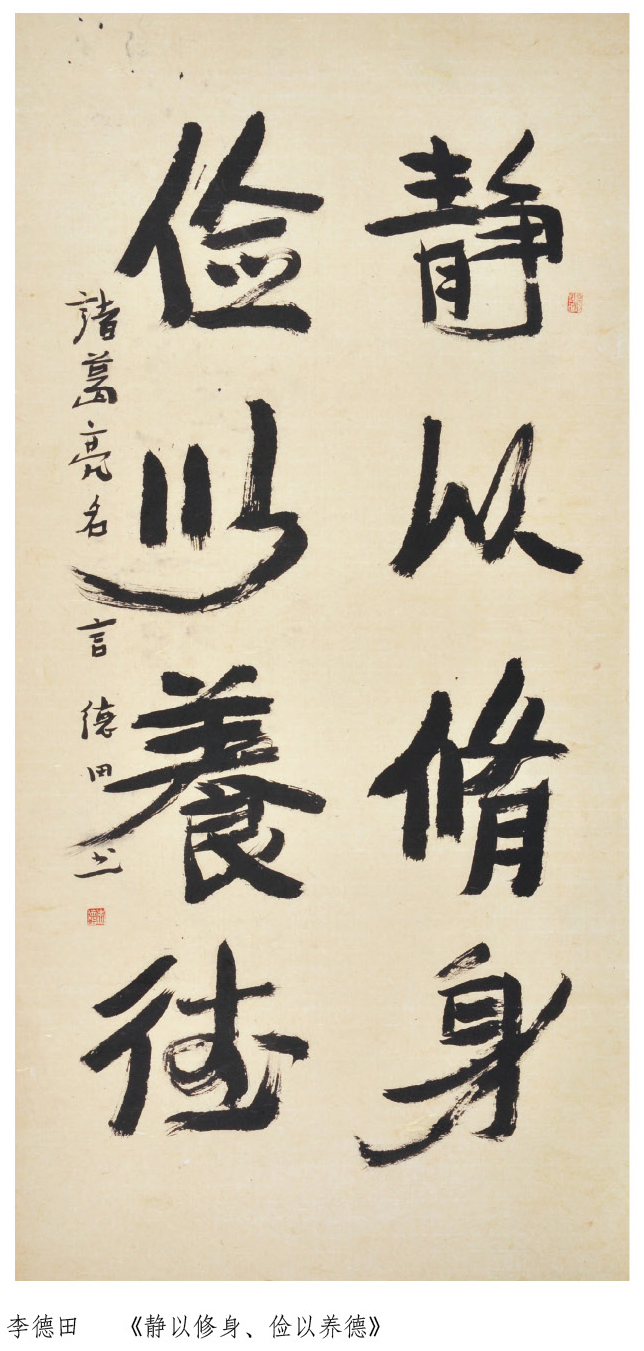 静以脩身
俭以養德
諸葛亮名言 德田书
李德田 《静以修身、俭以养德》